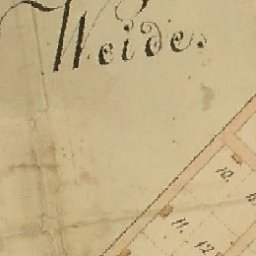 Weide.
10.
11.
12